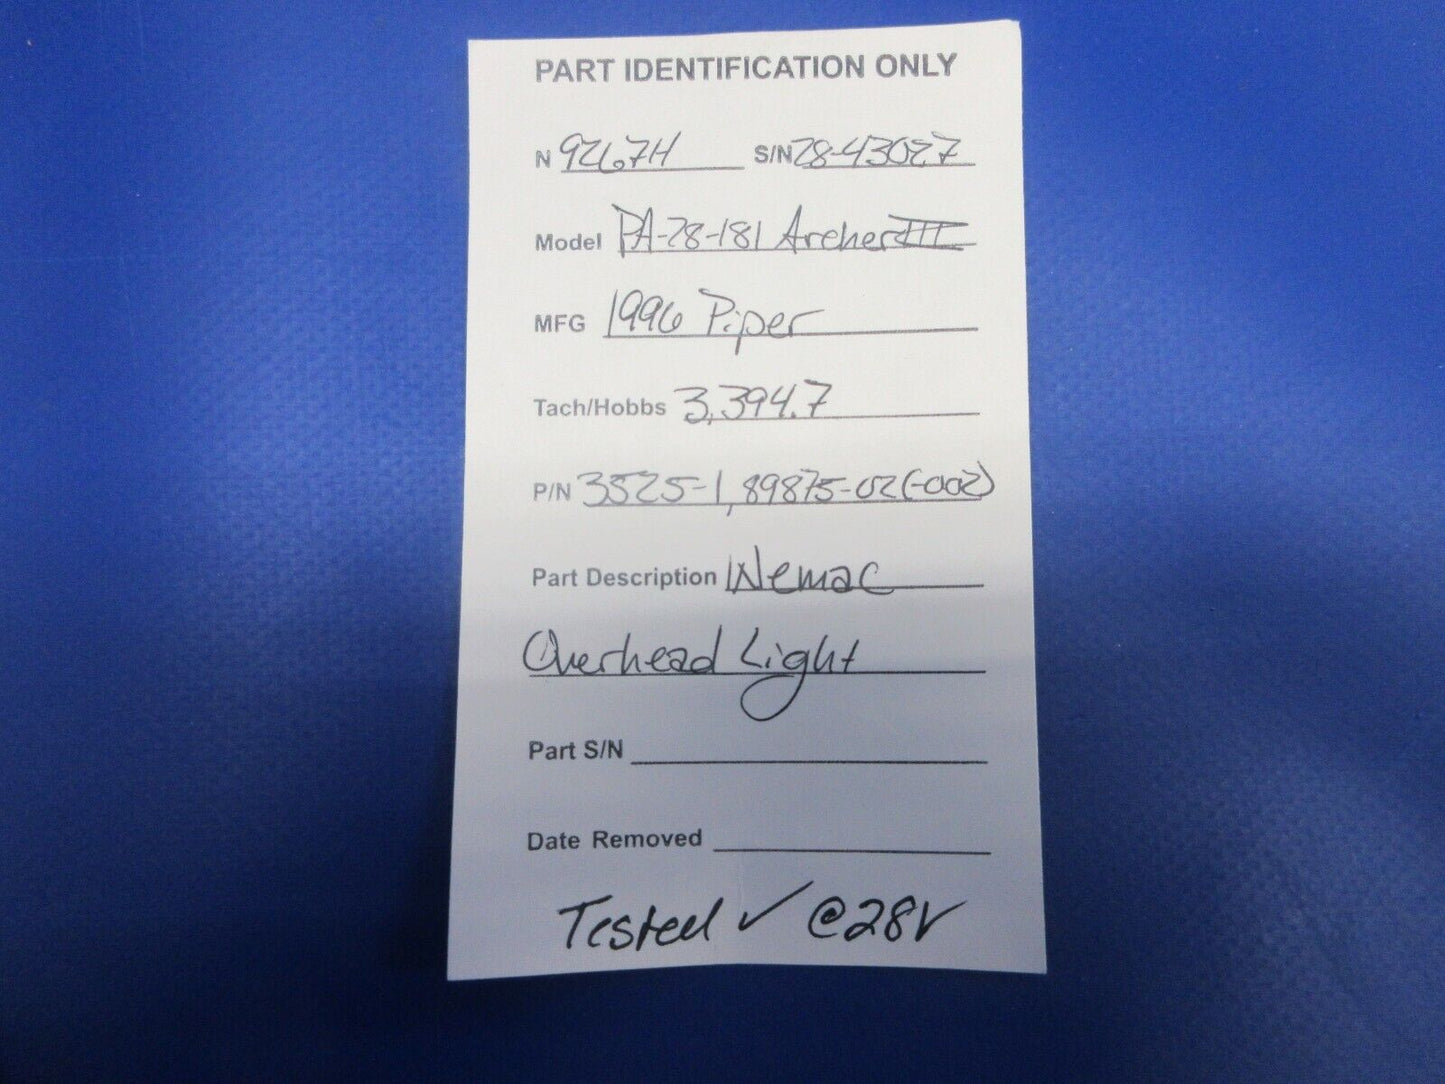 PART IDENTIFICATION ONLY
N 9267H S/N 28-43027
Model PA-28-181 Archer III
MFG 1996 Piper
Tach/Hobbs 3,394.7
P/N 3525-1, 89875-02(-002)
Part Description Wemac
Overhead Light
Part S/N
Date Removed
Tested ✓ @28V